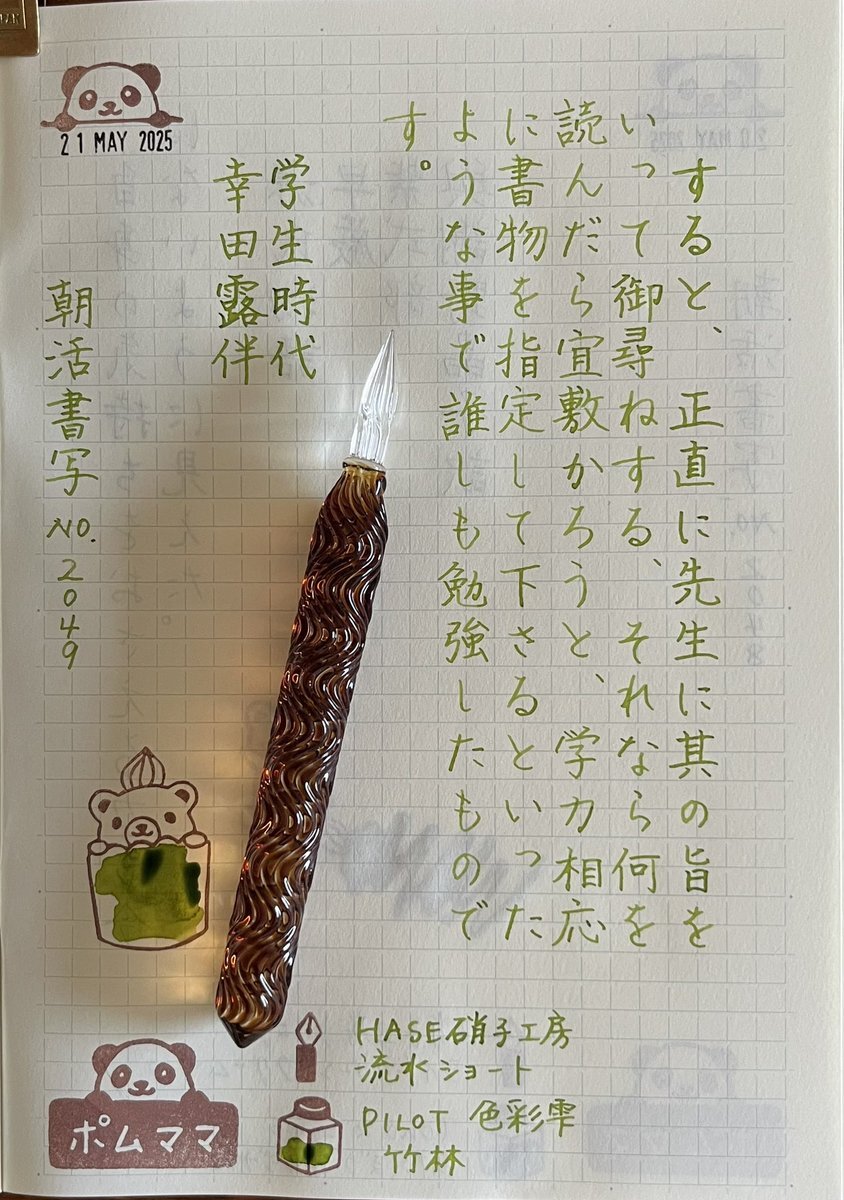 21 MAY 2025
すると、正直に先生に其の旨を
いって御尋ねする、それなら何を
読んだら宜敷かろうと、学力相応
に書物を指定して下さるといった
ような事で誰しも勉強したもので
す。
学生時代
幸田露伴
朝活書写 NO.2049
HASE硝子工房
流水ショート
PILOT 色彩雫
竹林
ポムママ